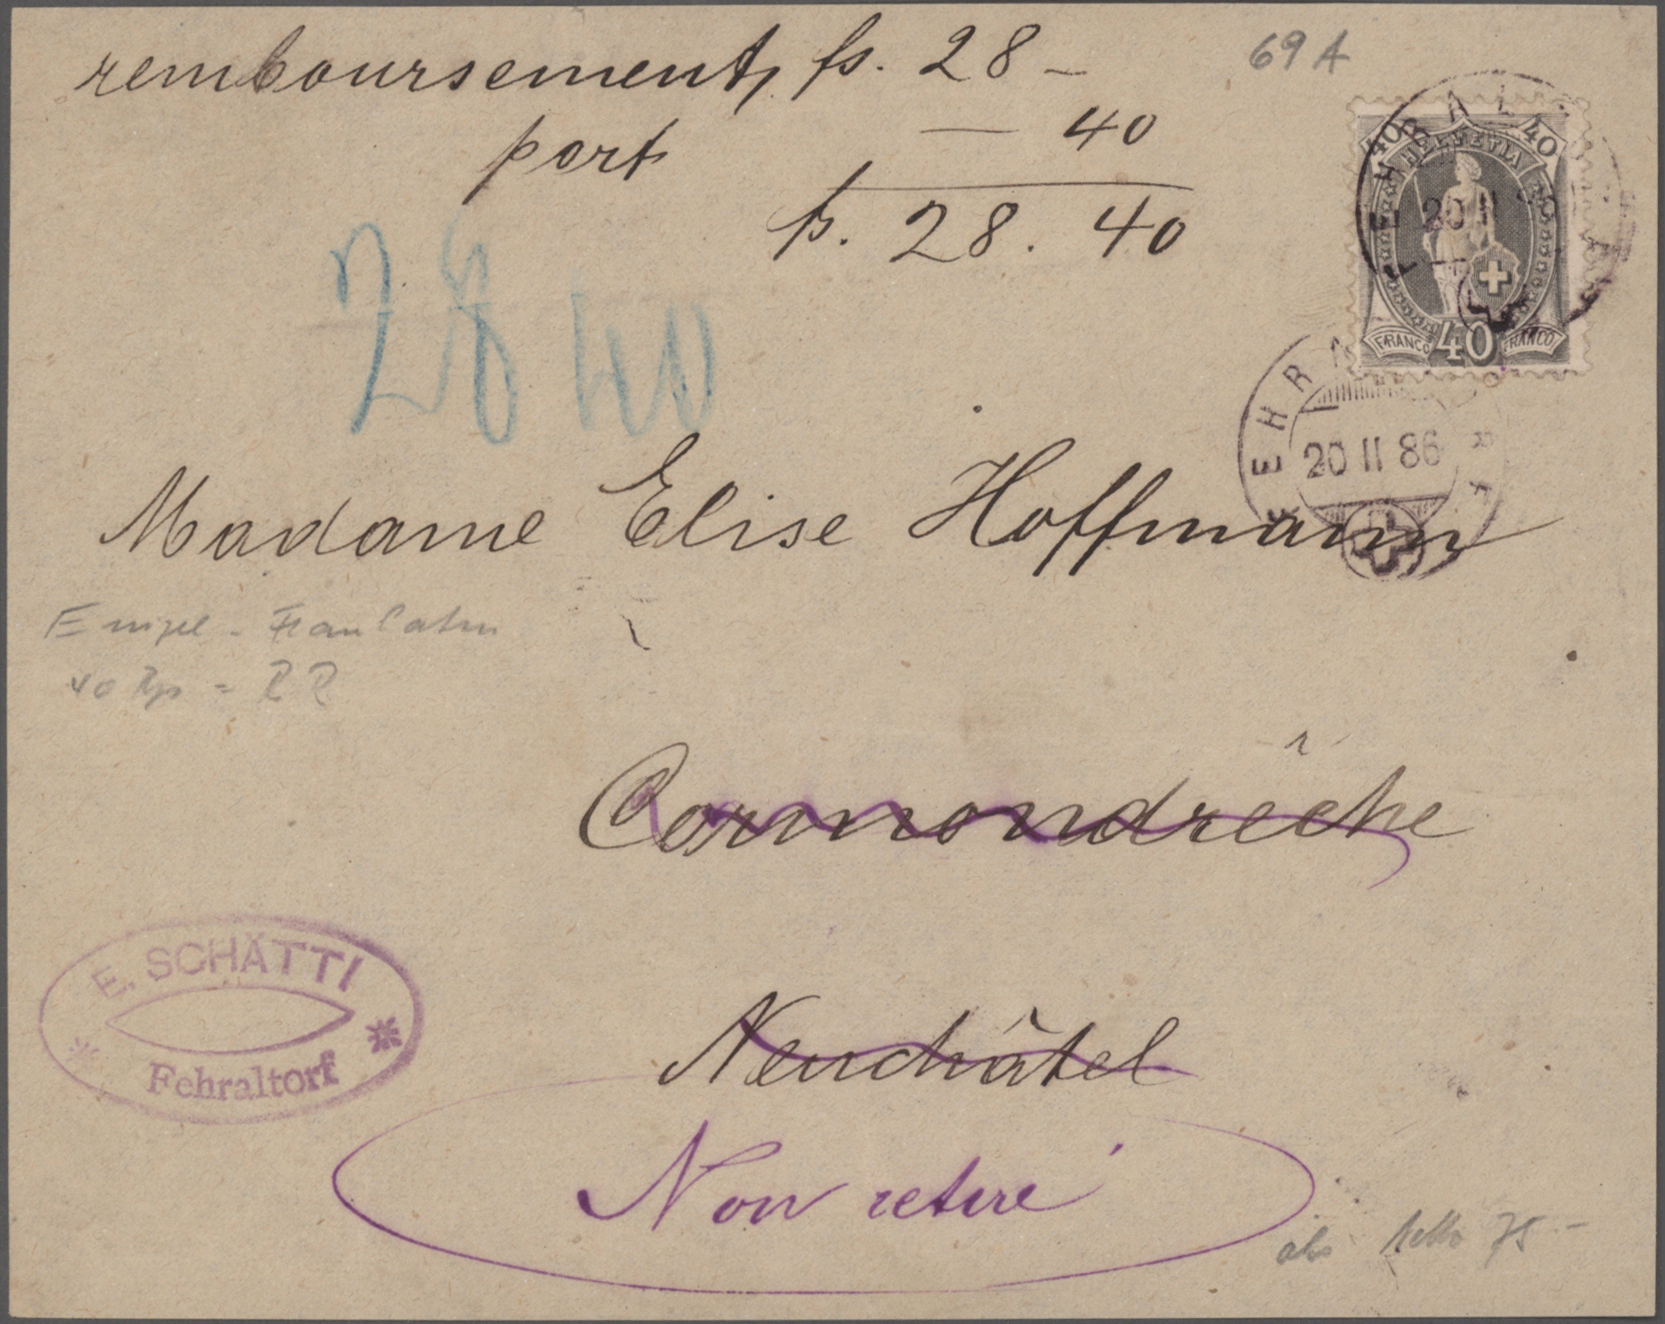 remboursement, fs. 28 -
69 A
port — 40
fs. 28. 40
28 40
40 40
HELVETIA
FRANCO 40 FRANCO
20 II 86
Madame Elise Hoffmann
40 Rp = RR
Cormondrèche
E. SCHÄTTI
Fehraltorf
Neuchâtel
Non retiré
75 -